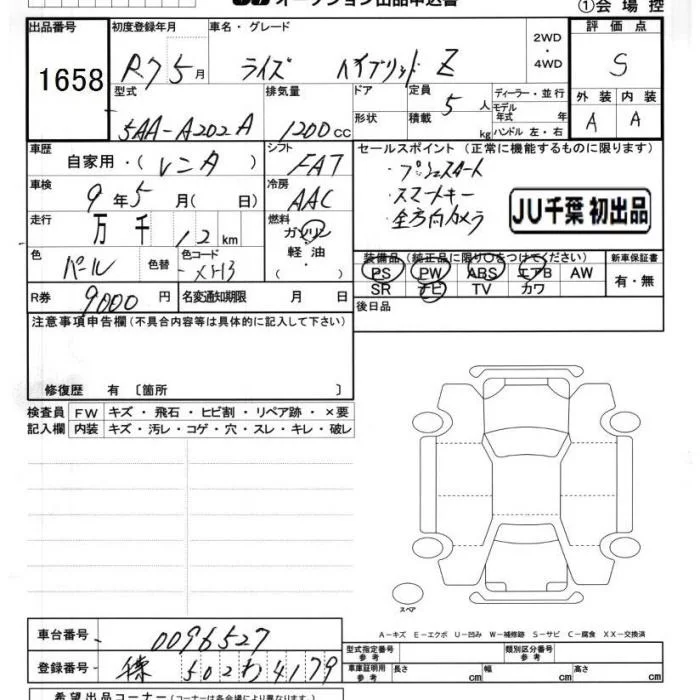 オークション出品申込書
①会場控
出品番号
1658
初度登録年月
R7 5月
車名・グレード
ライズ ハイブリッド Z
2WD
・
4WD
評価点
S
型式
5AA-A202A
排気量
1200cc
ドア
形状
定員
5人
積載
kg
ディーラー・並行
モデル年式 年
ハンドル 左・右
外装 内装
A A
車歴
自家用・(レンタ)
シフト
FAT
セールスポイント(正常に機能するものに限ります)
・プッシュスタート
・スマートキー
・全方向カメラ
JU千葉 初出品
車検
9年5月(日)
冷房
AAC
走行
万千12km
燃料
ガソリン
・
軽油
色
パール
色替
色コード
R券
9000円
名変通知期限 月 日
装備品(純正品に限り○をつけてください)
PS PW ABS エアB AW
SR ナビ TV カワ
新車保証書
有・無
後日品
注意事項申告欄(不具合内容等は具体的に記入して下さい)
修復歴 有〔箇所 〕
検査員記入欄
FW キズ・飛石・ヒビ割・リペア跡・×要
内装 キズ・汚レ・コゲ・穴・スレ・キレ・破レ
スペア
A-キズ E-エクボ U-凹み W-補修跡 S-サビ C-腐食 XX-交換済
車台番号
0096527
登録番号
502わ4179
型式指定番号参考
類別区分番号
車庫証明用参考
長さ cm 幅 cm 高さ cm
希望出品コーナー(コーナーは各会場により異なります。)